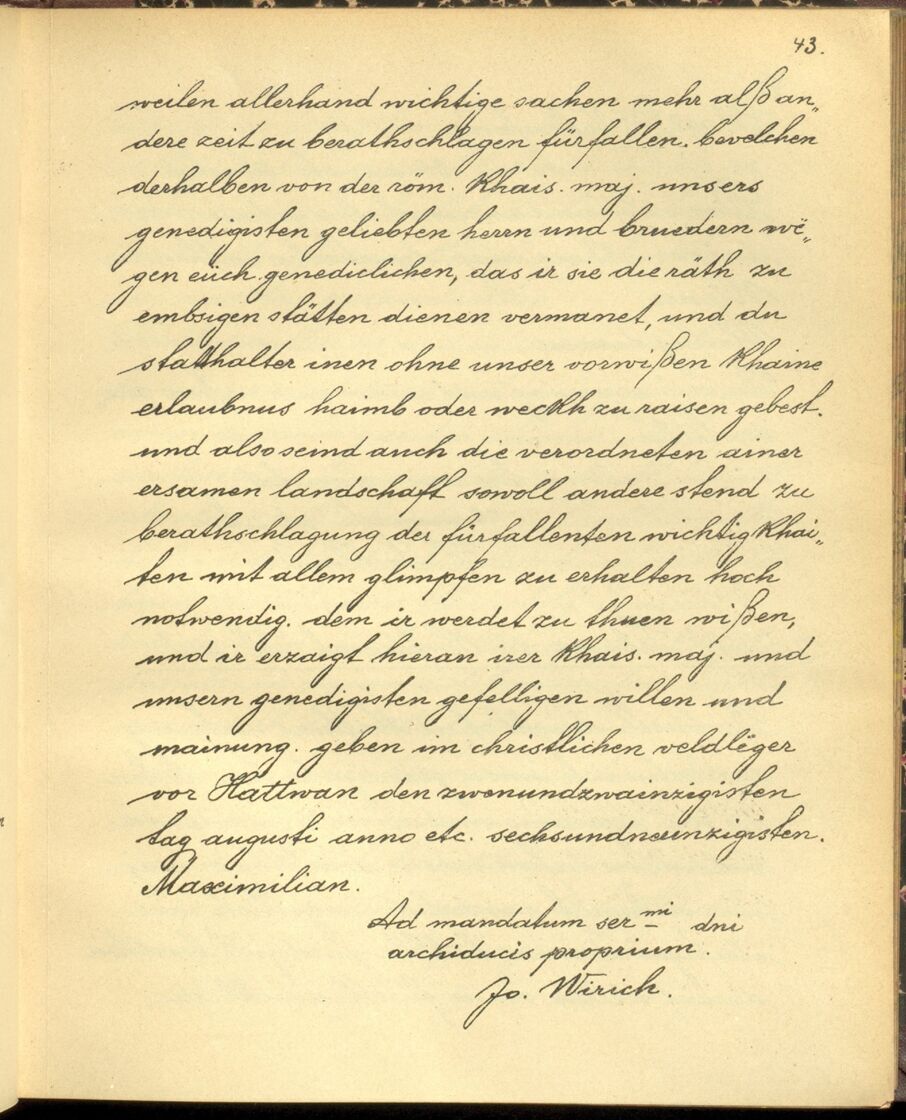 43.
weilen allerhand wichtige sachen mehr alß an„
dere zeit zu berathschlagen fürfallen. bevelchen
derhalben von der röm. Khais. maj. unsers
genedigisten geliebten herrn und bruedern we„
gen eüch genediclichen, das ir sie die räth zu
embsigen stätten dienen vermanet, und du
statthalter inen ohne unser vorwißen Khaine
erlaubnus haimb oder weckh zu raisen gebest.
und also seind auch die verordneten ainer
ersamen landschaft sowoll andere stend zu
berathschlagung der fürfallenten wichtigKhai„
ten mit allem glimpfen zu erhalten hoch
notwendig. dem ir werdet zu thuen wißen,
und ir erzaigt hieran irer Khais. maj. und
unsern genedigisten gefelligen willen und
mainung. geben im christlichen veldlëger
vor Hattwan den zwenundzwainzigisten
tag augusti anno etc. sechsundneunzigisten.
Maximilian.
Ad mandatum ser mi dni
archiducis proprium.
Jo. Wirich.